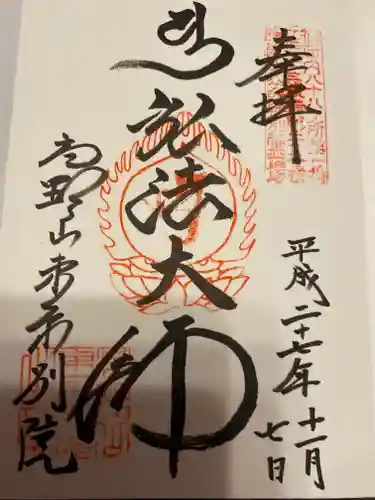 奉拝
平成二十七年
十一月
七日
弘法大師
高野山東京別院